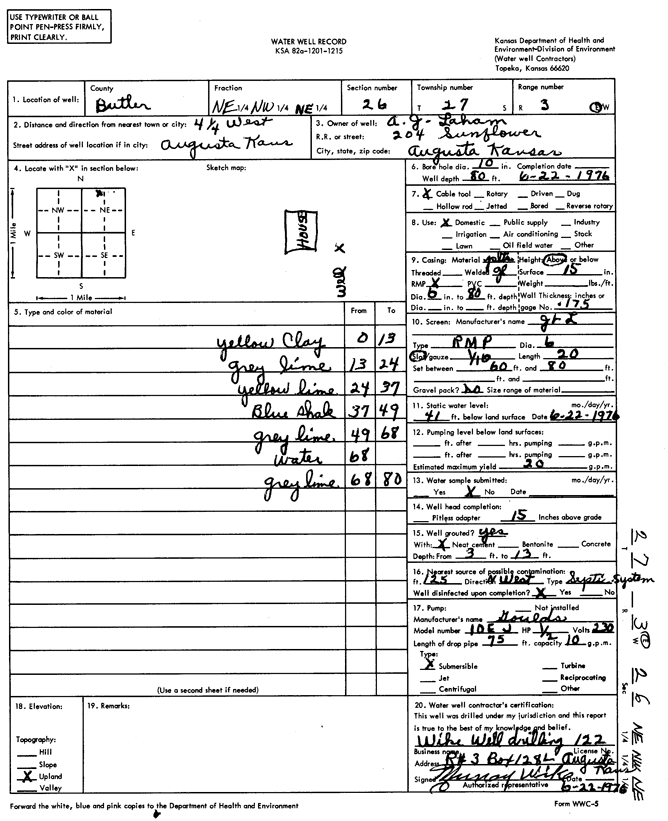 USE TYPEWRITER OR BALL
POINT PEN-PRESS FIRMLY,
PRINT CLEARLY.
WATER WELL RECORD
KSA 82a-1201-1215
Kansas Department of Health and
Environment-Division of Environment
(Water well Contractors)
Topeka, Kansas 66620
1. Location of well: County Butler Fraction NE 1/4 NW 1/4 NE 1/4 Section number 26 Township number T 27 S Range number R 3 E/W
2. Distance and direction from nearest town or city: 4 1/4 West
Street address of well location if in city: Augusta Kans
3. Owner of well: A. J. Laham
R.R. or street: 204 Sunflower
City, state, zip code: Augusta Kansas
4. Locate with "X" in section below: Sketch map:
N
NW NE
W E
SW SE
S
1 Mile
1 Mile
HOUSE
X
Well
5. Type and color of material From To
yellow Clay 0 13
grey lime 13 24
yellow lime 24 37
Blue Shale 37 49
grey lime 49 68
water 68
grey lime 68 80
(Use a second sheet if needed)
6. Bore hole dia. 10 in. Completion date
Well depth 80 ft. 6-22-1976
7. X Cable tool Rotary Driven Dug
Hollow rod Jetted Bored Reverse rotary
8. Use: X Domestic Public supply Industry
Irrigation Air conditioning Stock
Lawn Oil field water Other
9. Casing: Material Height: Above or below
Threaded Welded Surface 15 in.
RMP X PVC Weight lbs./ft.
Dia. 6 in. to 80 ft. depth Wall Thickness: inches or
Dia. in. to ft. depth gage No. .175
10. Screen: Manufacturer's name
Type RMP Dia. 6
Slot/gauze 1/16 Length 20
Set between 60 ft. and 80 ft.
ft. and ft.
Gravel pack? no Size range of material
11. Static water level: mo./day/yr.
41 ft. below land surface Date 6-22-1976
12. Pumping level below land surfaces:
ft. after hrs. pumping g.p.m.
ft. after hrs. pumping g.p.m.
Estimated maximum yield 20 g.p.m.
13. Water sample submitted: mo./day/yr.
Yes X No Date
14. Well head completion:
Pitless adapter 15 Inches above grade
15. Well grouted? yes
With: X Neat cement Bentonite Concrete
Depth: From 3 ft. to 13 ft.
16. Nearest source of possible contamination:
ft. 125 Direction West Type Septic System
Well disinfected upon completion? X Yes No
17. Pump: Not installed
Manufacturer's name Goulds
Model number 10EJ HP 1/2 Volts 230
Length of drop pipe 75 ft. capacity 10 g.p.m.
Type:
X Submersible Turbine
Jet Reciprocating
Centrifugal Other
18. Elevation:
Topography:
Hill
Slope
X Upland
Valley
19. Remarks:
20. Water well contractor's certification:
This well was drilled under my jurisdiction and this report
is true to the best of my knowledge and belief.
Wike Well drilling 122
Business name License No.
Address R#3 Box 128L Augusta Kans
Signed Murray Wike Date 6-22-1976
Authorized representative
Forward the white, blue and pink copies to the Department of Health and Environment
Form WWC-5
T 27 - R 3 E W Sec 26 NE 1/4 NW 1/4 NE 1/4